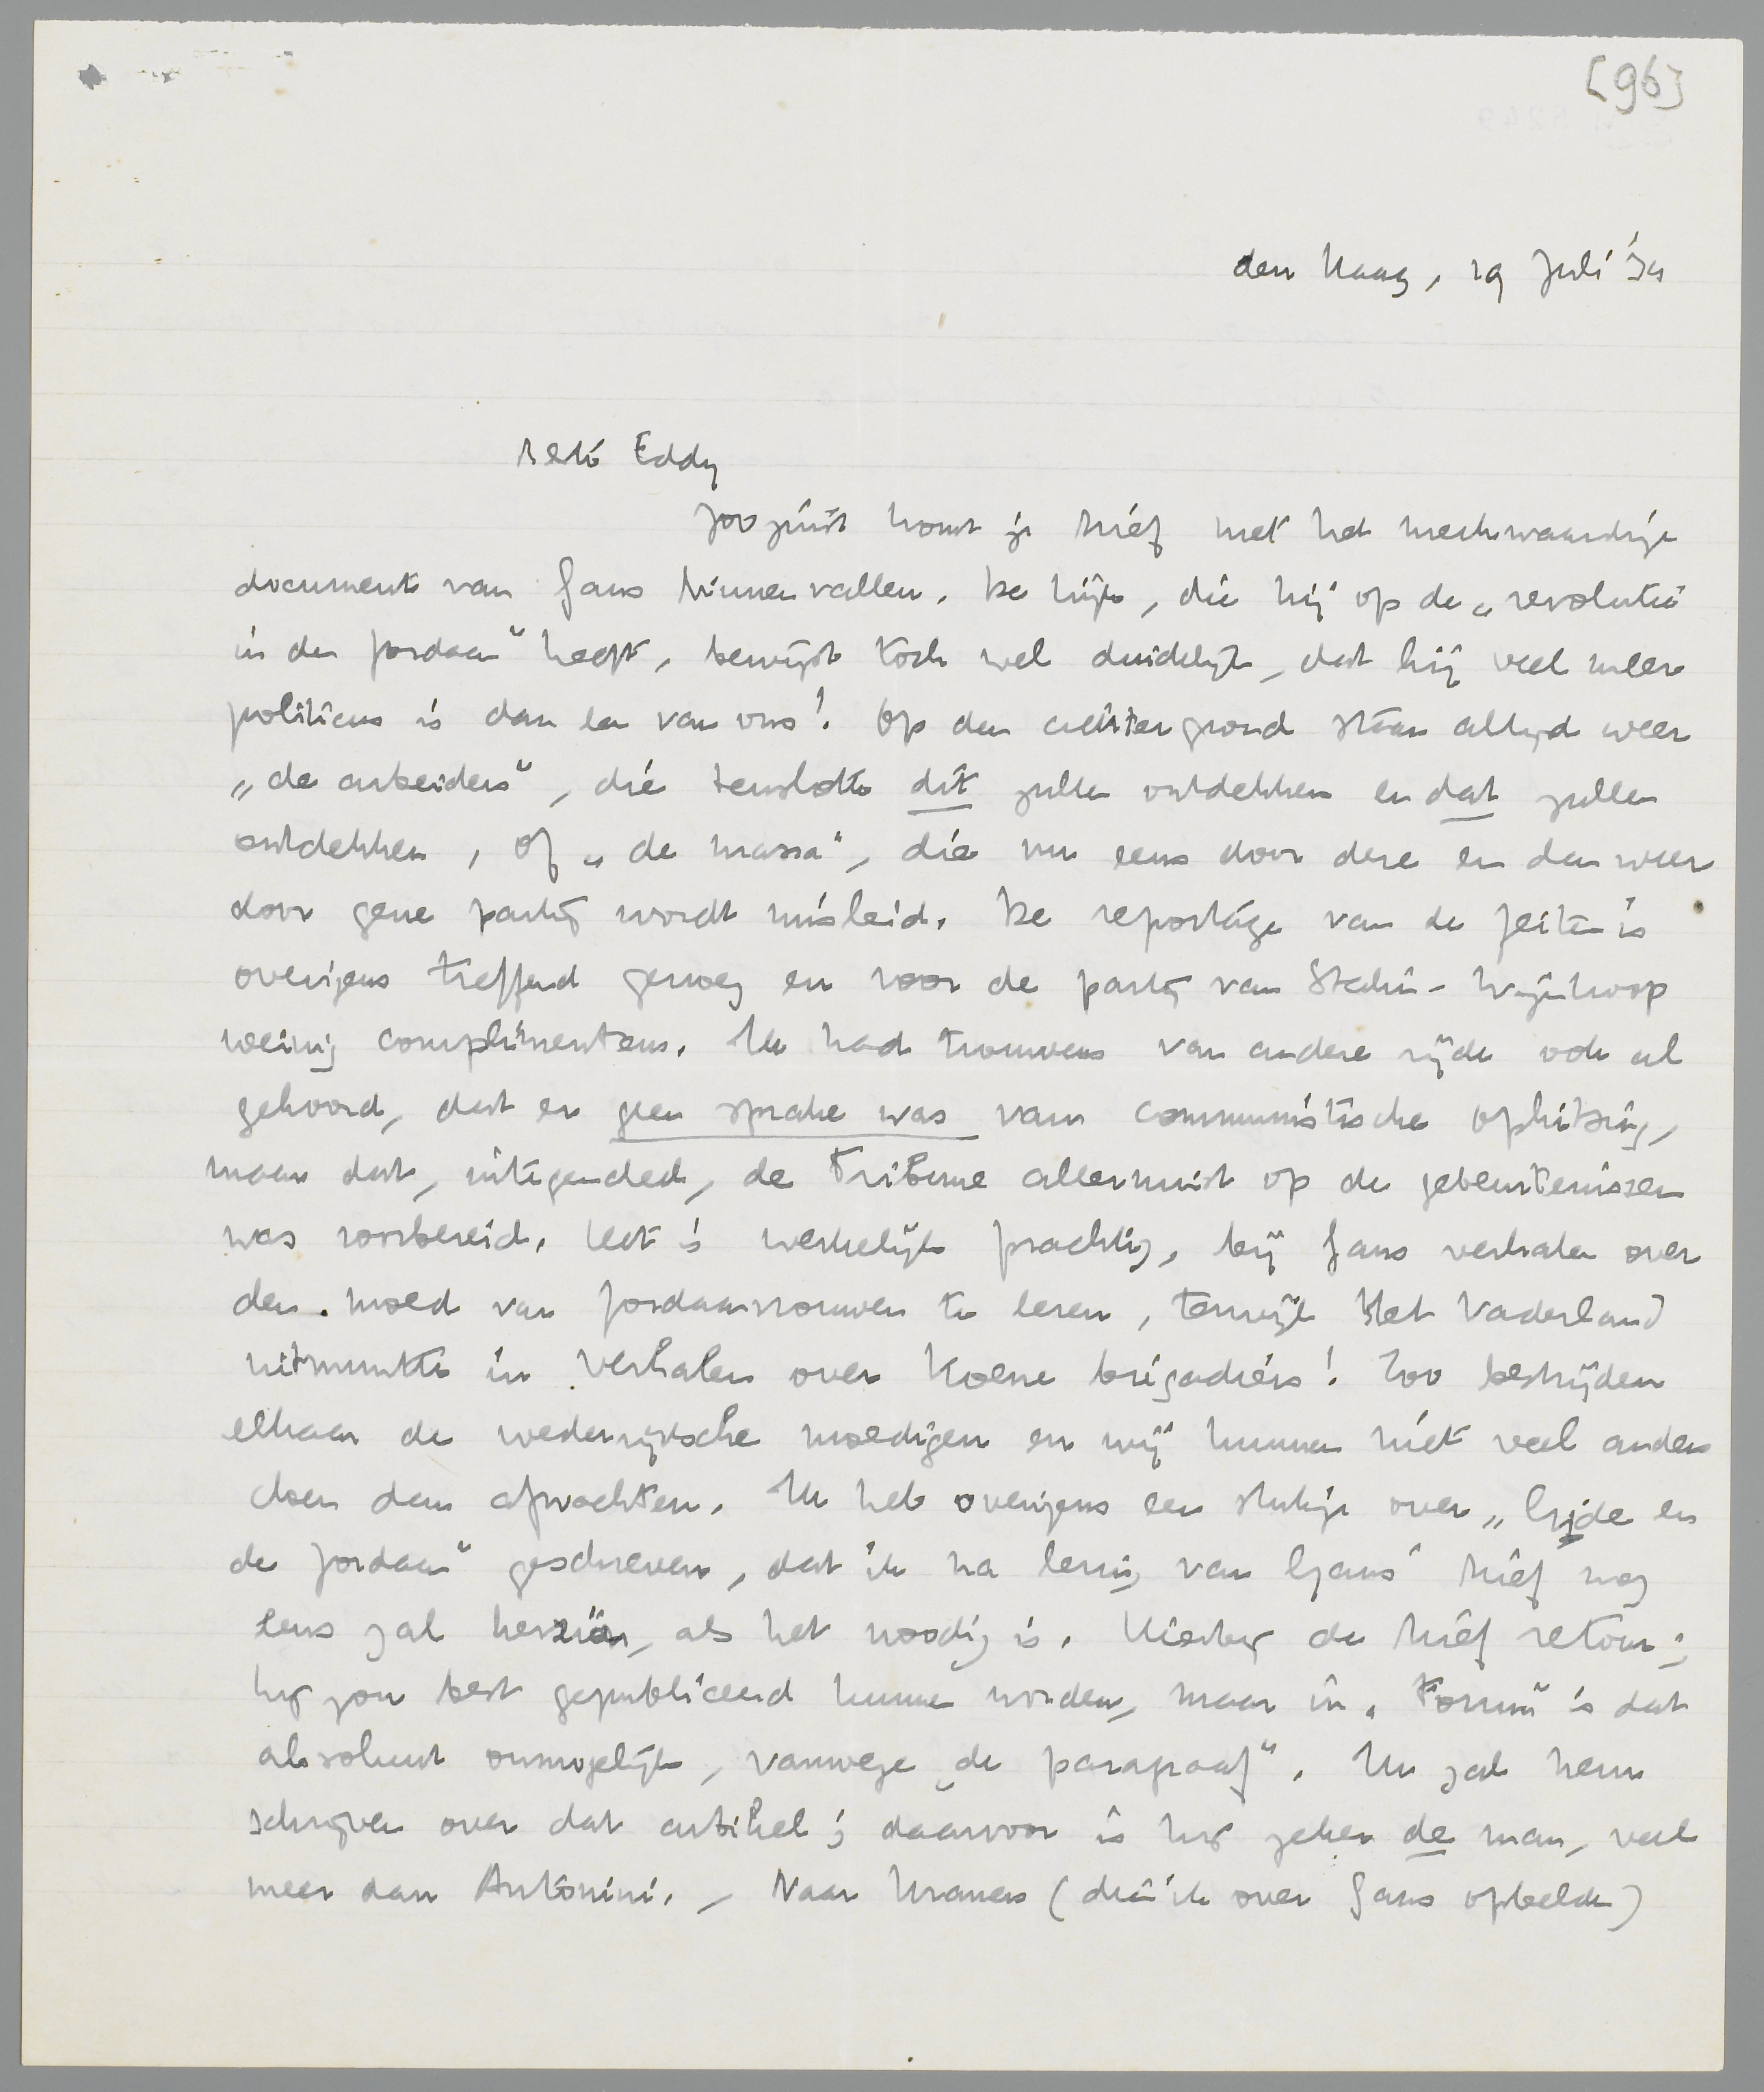 [96]
den Haag, 19 Juli '34
Beste Eddy
Zoo juist komt je brief met het merkwaardige
document van Gans binnenvallen. De kijk, die hij op de „revolutie
in den Jordaan" heeft, bewijst toch wel duidelijk, dat hij veel meer
politicus is dan een van ons! Op den achtergrond staan altijd weer
„de arbeiders", die tenslotte dit zullen ontdekken en dat zullen
ontdekken, of „de massa", die nu eens door deze en dan weer
door gene partij wordt misleid. De reportage van de feiten is
overigens treffend genoeg en voor de partij van Stalin-Wijnkoop
weinig complimenteus. Ik had trouwens van andere zijde ook al
gehoord, dat er geen sprake was van communistische ophitsing,
maar dat, integendeel, de Tribune allerminst op de gebeurtenissen
was voorbereid. Het is werkelijk prachtig, bij Gans verhalen over
den moed van Jordaanvrouwen te lezen, terwijl Het Vaderland
uitmuntte in verhalen over koene brigadiers! Zoo bestrijden
elkaar de wederzijdsche moedigen en wij kunnen niet veel anders
doen dan afwachten. Ik heb overigens een stukje over „Ijzde en
de Jordaan" geschreven, dat ik na lezing van Gans' brief nog
eens zal herzien, als het noodig is. Hierbij de brief retour;
hij zou best gepubliceerd kunnen worden, maar in „Forum" is dat
absoluut onmogelijk, vanwege „de paragraaf". Ik zal hem
schrijven over dat artikel; daarvoor is hij zeker de man, veel
meer dan Antonini. – Naar Kramers (dien ik over Gans opbelde)